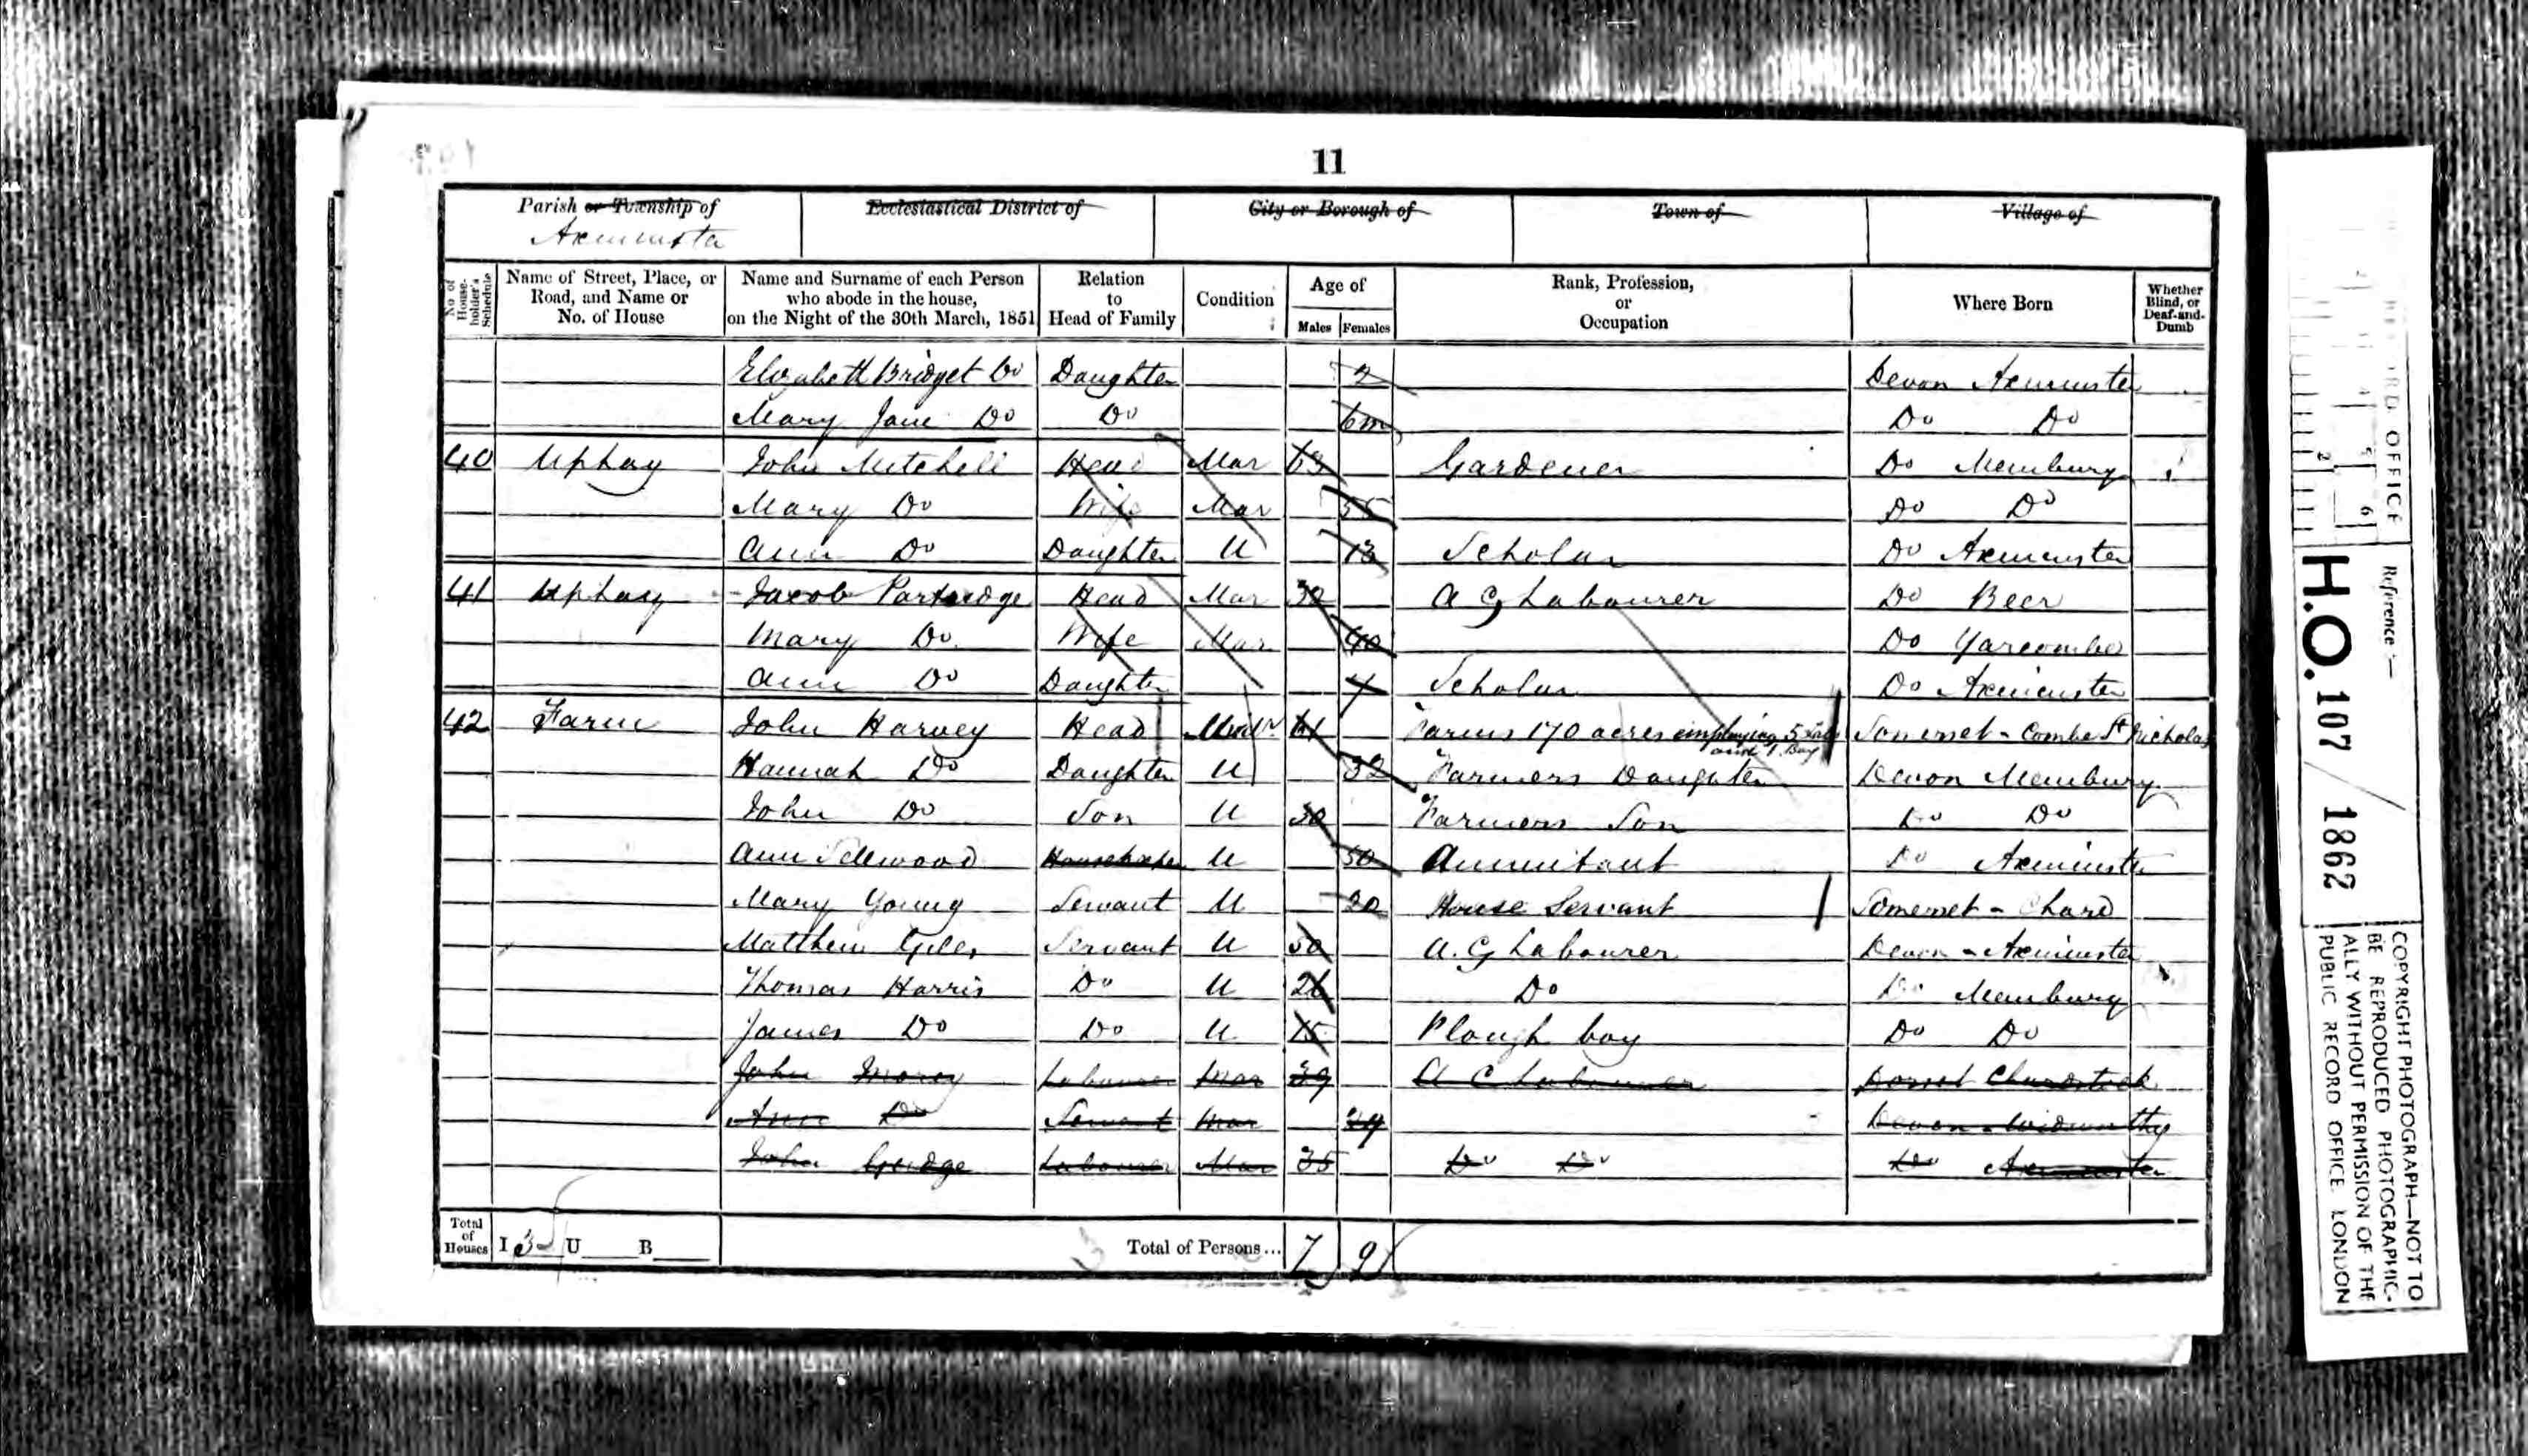 11
Parish or Township of
Axminster
Ecclesiastical District of
City or Borough of
Town of
Village of
No of House-holder's Schedule
Name of Street, Place, or Road, and Name or No. of House
Name and Surname of each Person who abode in the house, on the Night of the 30th March, 1851
Relation to Head of Family
Condition
Age of
Males Females
Rank, Profession, or Occupation
Where Born
Whether Blind, or Deaf-and-Dumb
Elizabeth Bridget Do Daughter 2 Devon Axminster
Mary Jane Do Do 6m Do Do
40 Uphay John Mitchell Head Mar 63 Gardener Do Membury
Mary Do Wife Mar 55 Do Do
Ann Do Daughter U 13 Scholar Do Axminster
41 Uphay Jacob Partridge Head Mar 32 Ag Labourer Do Beer
Mary Do Wife Mar 40 Do Yarcombe
Ann Do Daughter 7 Scholar Do Axminster
42 Farm John Harvey Head 61 Farms 170 acres employing 5 Lab and 1 Boy Somerset - Combe St Nicholas
Hannah Do Daughter U 32 Farmers Daughter Devon Membury
John Do Son U 30 Farmers Son Do Do
Ann Sellwood U 50 Annuitant Do Axminster
Mary Young Servant U 20 House Servant Somerset - Chard
Matthew Giles Servant U 50 A. G Labourer Devon - Axminster
Thomas Harris Do U 26 Do Do Membury
James Do Do U 15 Plough boy Do Do
John Labourer Mar 39 A G Labourer Dorset Chardstock
Ann Do Servant Mar 29 Devon - Widworthy
John Gudge Labourer Mar 35 Do Do Do Axminster
Total of Houses I 3 U B
Total of Persons... 7 9
RD OFFICE
Reference :-
H.O. 107 / 1862
COPYRIGHT PHOTOGRAPH—NOT TO
BE REPRODUCED PHOTOGRAPHIC-
ALLY WITHOUT PERMISSION OF THE
PUBLIC RECORD OFFICE, LONDON